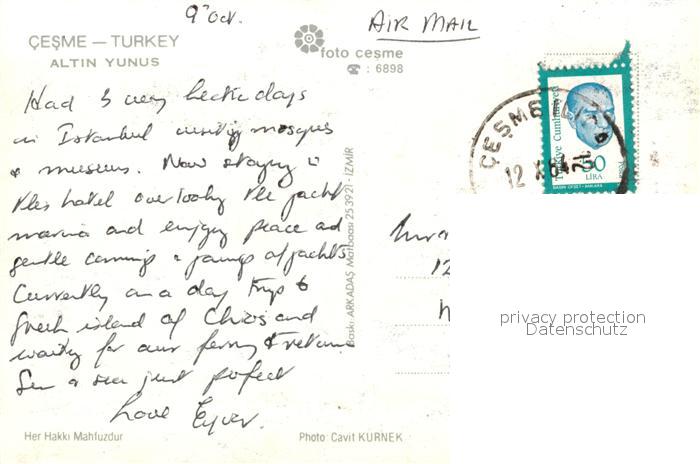 9th Oct.
AIR MAIL
ÇEŞME — TURKEY
ALTIN YUNUS
foto çeşme
☎ : 6898
Had 3 very hectic days
in Istanbul visiting mosques
& museums. Now staying in
this hotel overlooking the yacht
marina and enjoying peace and
gentle comings & goings of yachts.
Currently on a day trip to
Greek island of Chios and
waiting for our ferry to return
Sun & sea just perfect
Love
Her Hakkı Mahfuzdur
Photo: Cavit KÜRNEK
Baskı: ARKADAŞ Matbaası 253921 İZMİR
ÇEŞME
12 X 84
Türkiye Cumhuriyeti
50
LİRA
12
privacy protection
Datenschutz